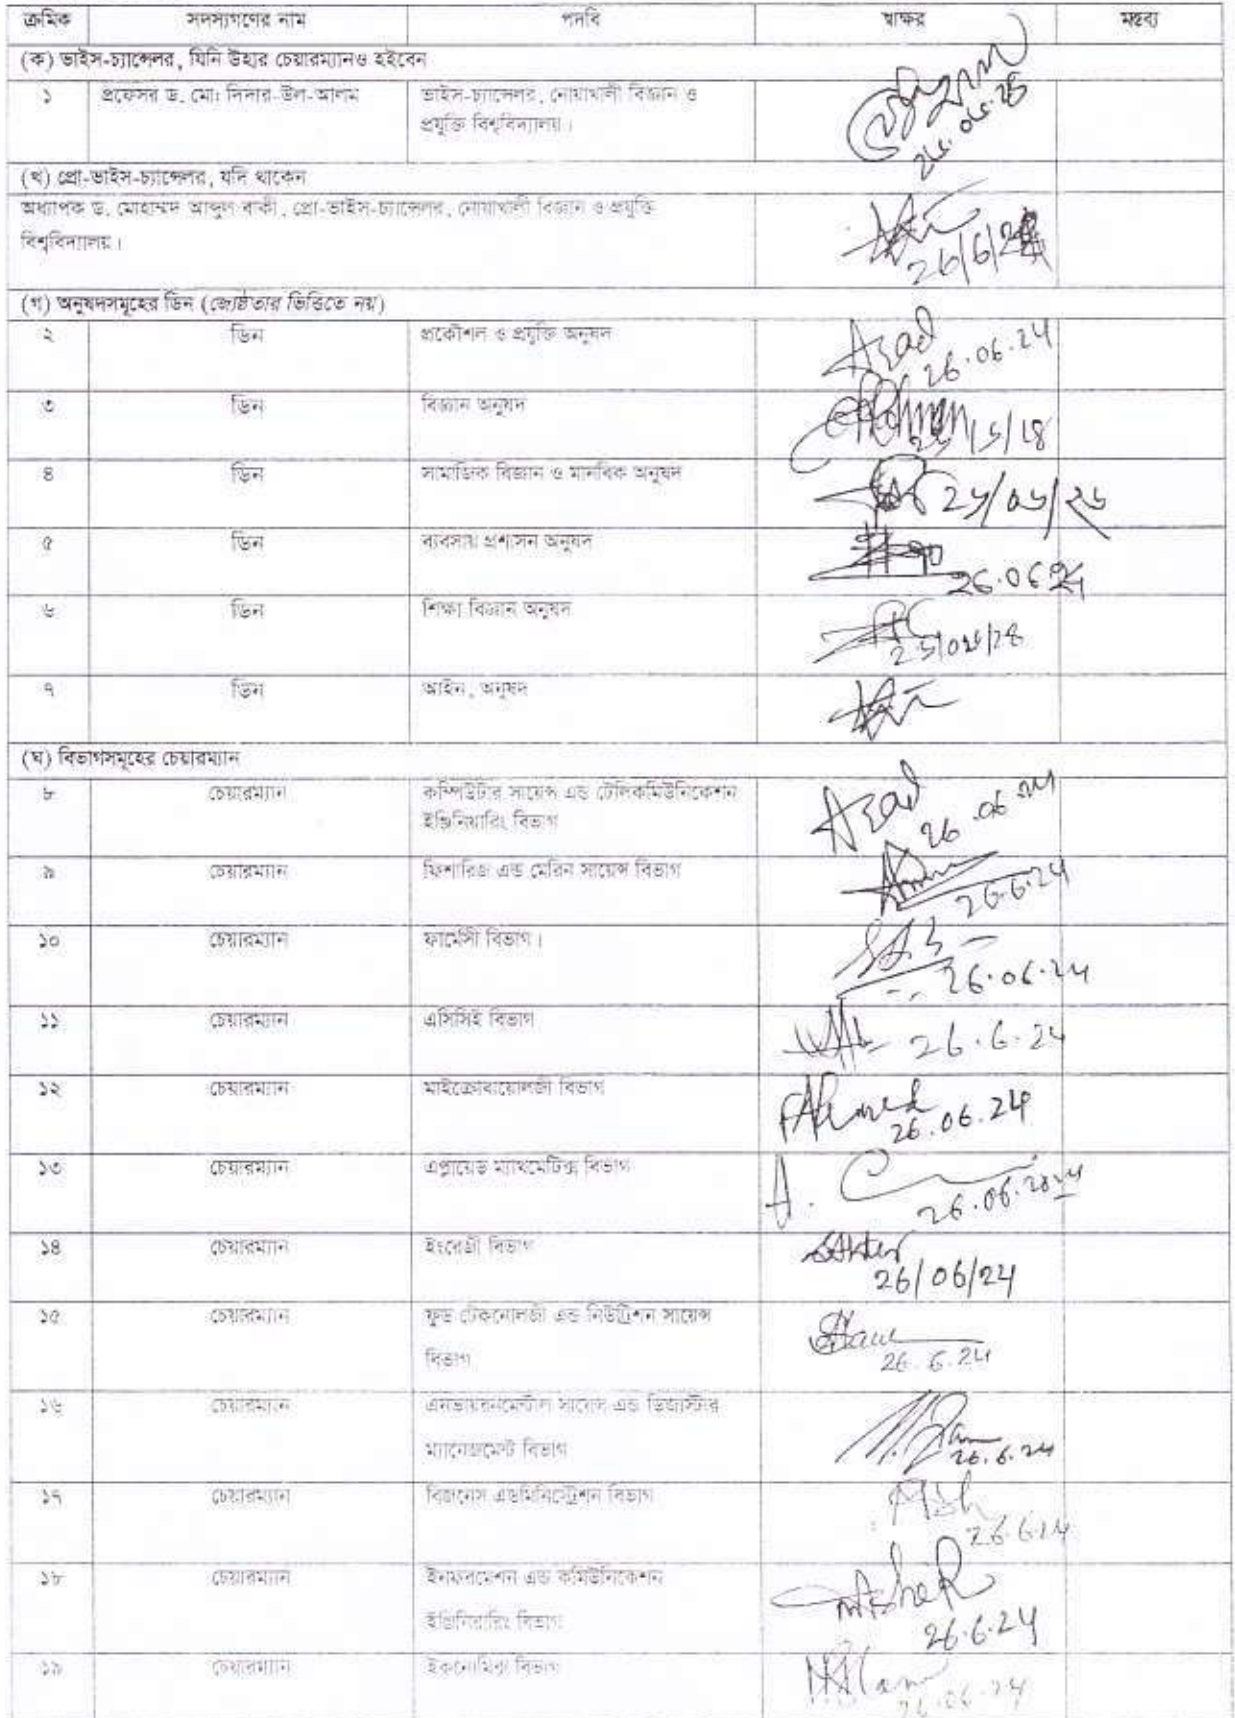 ক্রমিক সদস্যগণের নাম পদবি স্বাক্ষর মন্তব্য
(ক) ভাইস-চ্যান্সেলর, যিনি উহার চেয়ারম্যানও হইবেন
১ প্রফেসর ড. মোঃ দিদার-উল-আলম ভাইস-চ্যান্সেলর, নোয়াখালী বিজ্ঞান ও
প্রযুক্তি বিশ্ববিদ্যালয়।
২৬.০৬.২৪
(খ) প্রো-ভাইস-চ্যান্সেলর, যদি থাকেন
অধ্যাপক ড. মোহাম্মদ আব্দুল বাকী, প্রো-ভাইস-চ্যান্সেলর, নোয়াখালী বিজ্ঞান ও প্রযুক্তি
বিশ্ববিদ্যালয়।
26/6/24
(গ) অনুষদসমূহের ডিন (জ্যেষ্ঠতার ভিত্তিতে নয়)
২ ডিন প্রকৌশল ও প্রযুক্তি অনুষদ Azad
26.06.24
৩ ডিন বিজ্ঞান অনুষদ
৪ ডিন সামাজিক বিজ্ঞান ও মানবিক অনুষদ
৫ ডিন ব্যবসায় প্রশাসন অনুষদ
26.06.24
৬ ডিন শিক্ষা বিজ্ঞান অনুষদ
৭ ডিন আইন, অনুষদ
(ঘ) বিভাগসমূহের চেয়ারম্যান
৮ চেয়ারম্যান কম্পিউটার সায়েন্স এন্ড টেলিকমিউনিকেশন
ইঞ্জিনিয়ারিং বিভাগ
Azad
26.06.24
৯ চেয়ারম্যান ফিশারিজ এন্ড মেরিন সায়েন্স বিভাগ
26.6.24
১০ চেয়ারম্যান ফার্মেসী বিভাগ।
26.06.24
১১ চেয়ারম্যান এসিসিই বিভাগ
26.6.24
১২ চেয়ারম্যান মাইক্রোবায়োলজী বিভাগ FAhmed
26.06.24
১৩ চেয়ারম্যান এপ্লায়েড ম্যাথমেটিক্স বিভাগ
26.06.2024
১৪ চেয়ারম্যান ইংরেজী বিভাগ
26/06/24
১৫ চেয়ারম্যান ফুড টেকনোলজী এন্ড নিউট্রিশন সায়েন্স
বিভাগ
26.6.24
১৬ চেয়ারম্যান এনভায়রনমেন্টাল সায়েন্স এন্ড ডিজাস্টার
ম্যানেজমেন্ট বিভাগ
26.6.24
১৭ চেয়ারম্যান বিজনেস এডমিনিস্ট্রেশন বিভাগ
26.6.24
১৮ চেয়ারম্যান ইনফরমেশন এন্ড কমিউনিকেশন
ইঞ্জিনিয়ারিং বিভাগ
26.6.24
১৯ চেয়ারম্যান ইকনোমিক্স বিভাগ
26.06.24